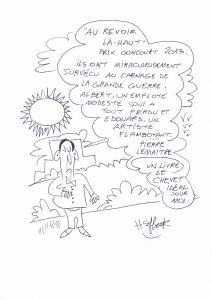 "AU REVOIR
LÀ-HAUT".
PRIX GONCOURT 2013.
ILS ONT MIRACULEUSEMENT
SURVÉCU AU CARNAGE DE
LA GRANDE GUERRE.
ALBERT, UN EMPLOYÉ
MODESTE QUI A
TOUT PERDU ET
EDOUARD, UN
ARTISTE
FLAMBOYANT.
PIERRE
LEMAITRE
UN LIVRE
DE
CHEVET
IDÉAL
POUR
MOI